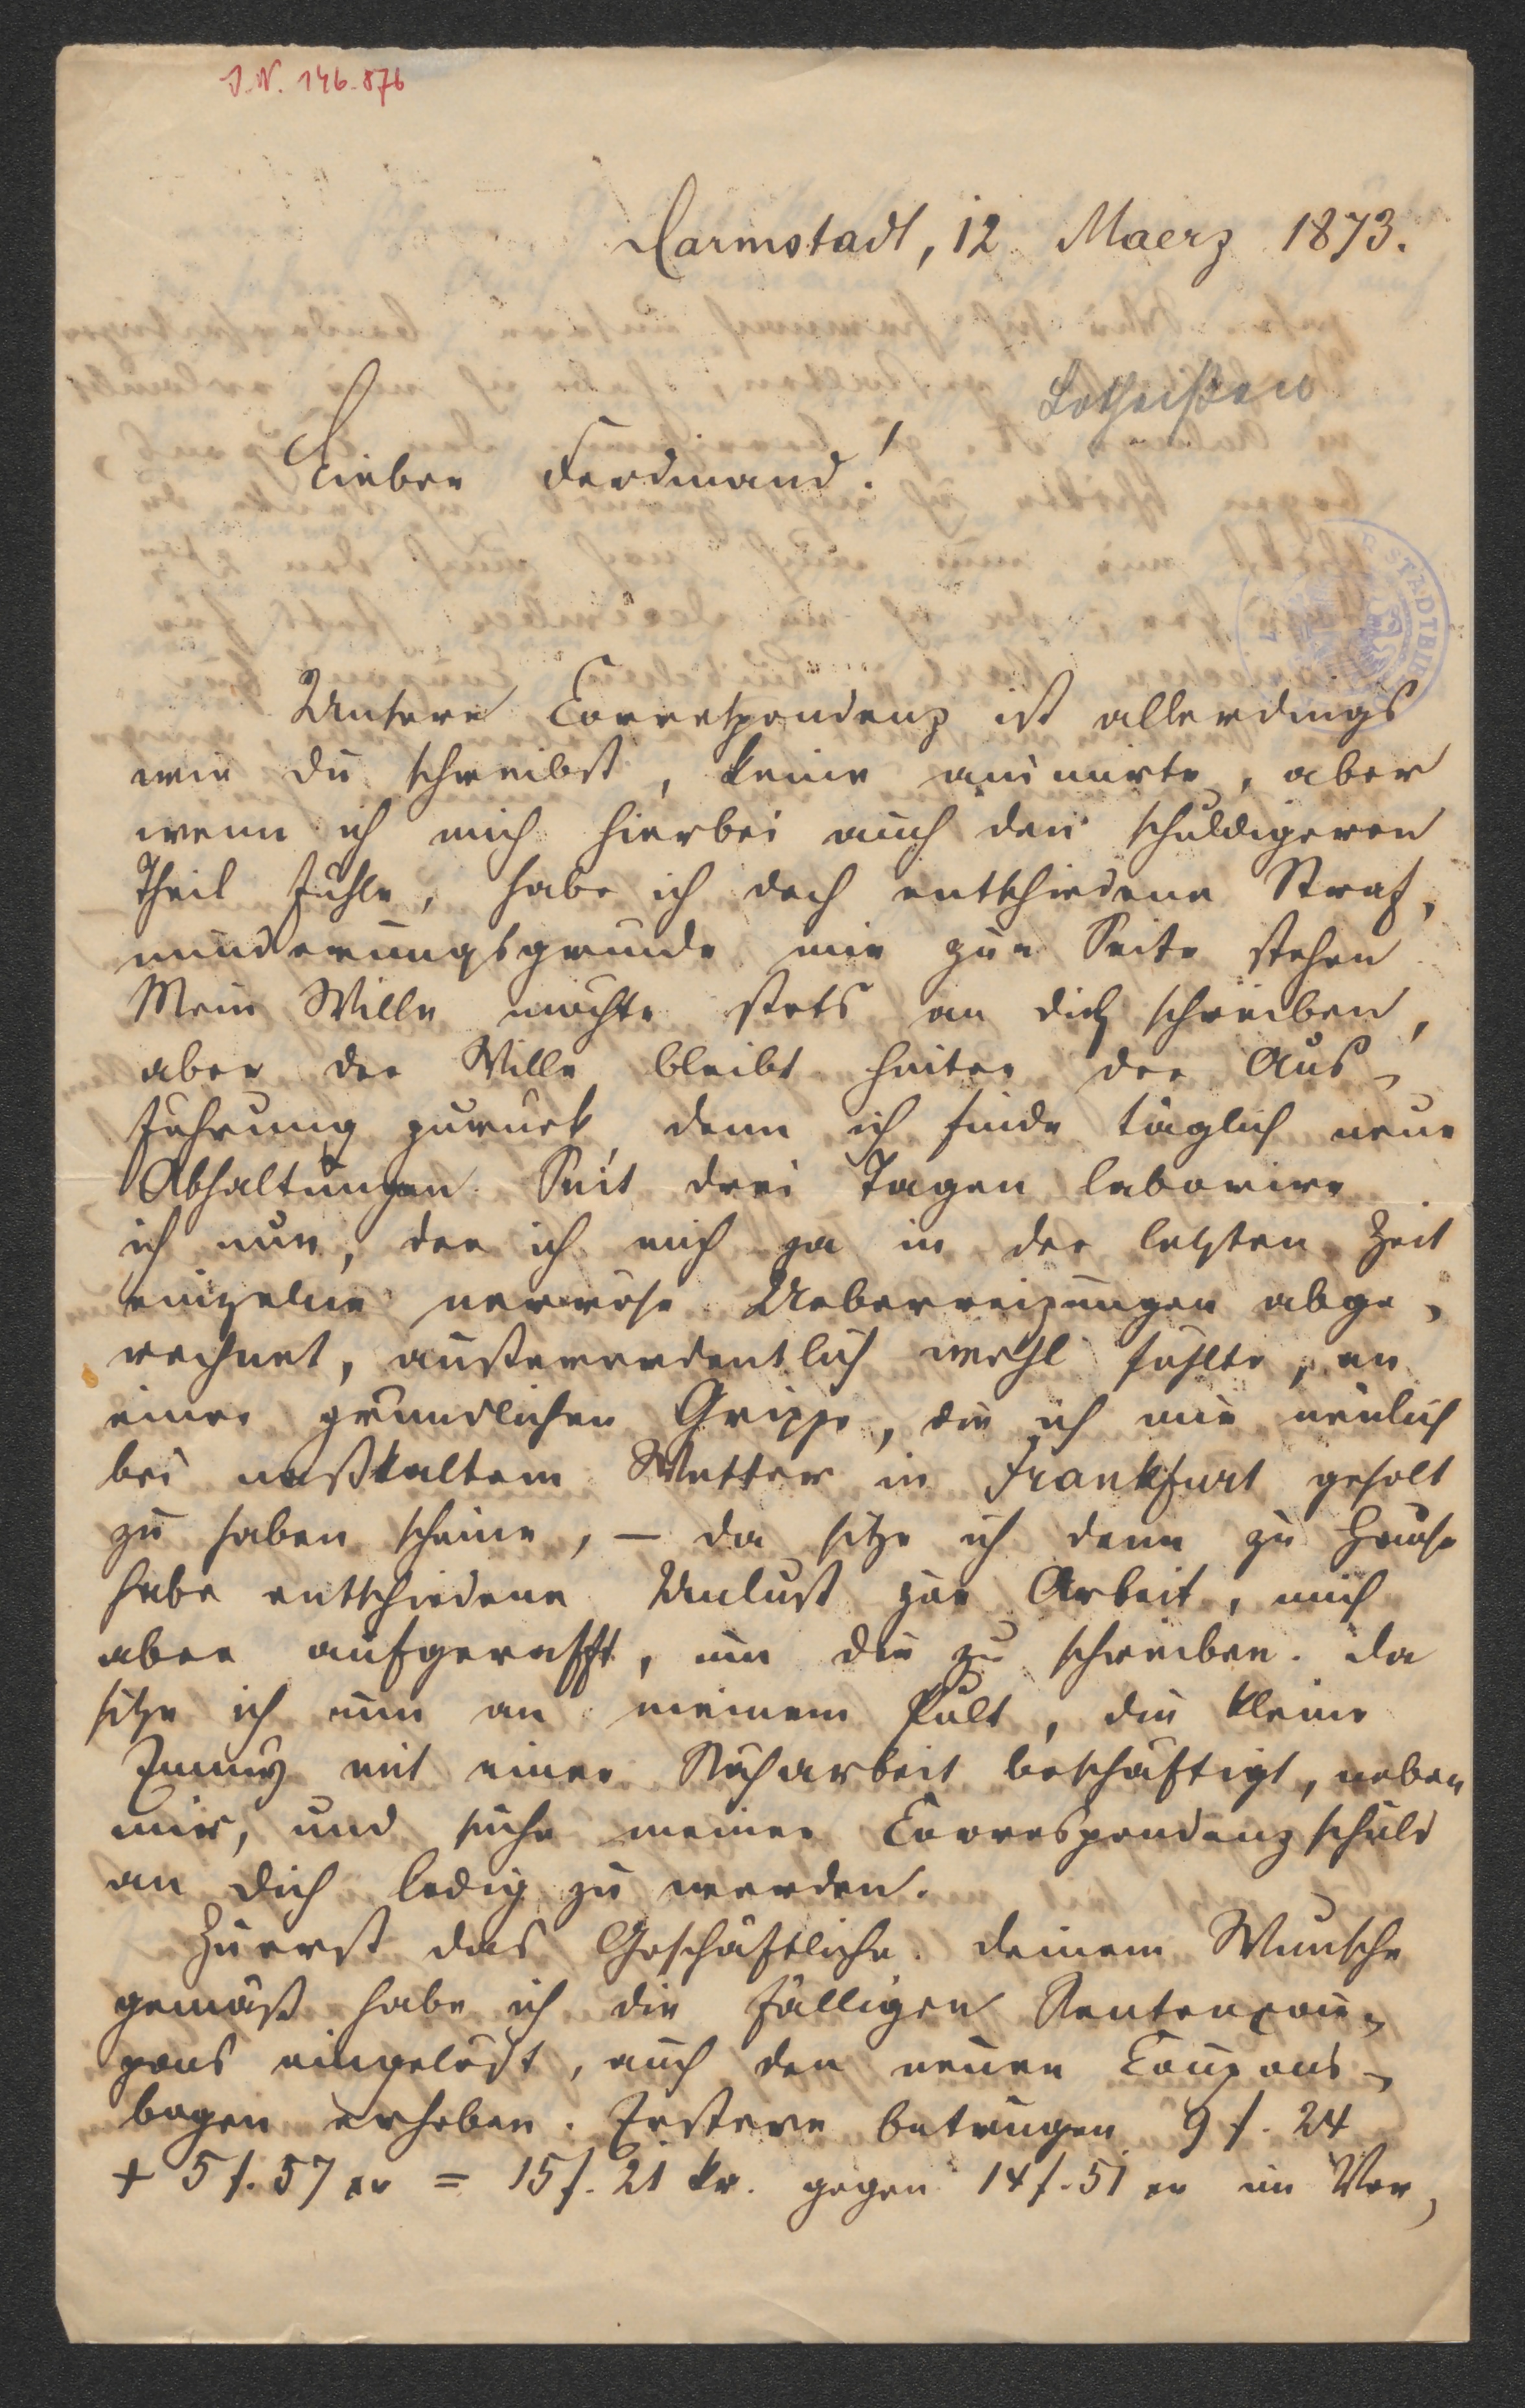 J.N. 146.876
Darmstadt, 12 Maerz 1873.
Lotheißen
Lieber Ferdinand!
STADTBIB
Unsere Correspondenz ist allerdings
wie du schreibst, keine animirte, aber
wenn ich mich hierbei auch den schuldigeren
Theil fühle, habe ich doch entschiedene Straf-
minderungsgründe mir zur Seite stehen
Mein Wille möchte stets an dich schreiben,
aber der Wille bleibt hinter der Aus-
führung zurück, denn ich finde täglich neue
Abhaltungen. Seit drei Tagen laborire
ich nun, der ich mich ja in der letzten Zeit
einzelne nervöse Ueberreizungen abge-
rechnet, außerordentlich wohl fühlte, an
einer gründlichen Grippe, die ich mir neulich
bei naßkaltem Wetter in Frankfurt geholt
zu haben scheine, – da sitze ich denn zu Hause
habe entschiedene Unlust zur Arbeit, mich
aber aufgerafft, um dir zu schreiben. Da
sitze ich nun an meinem Pult, die kleine
Emmy mit einer Näharbeit beschäftigt, neben
mir, und suche meiner Correspondenzschuld
an dich ledig zu werden.
Zuerst das Geschäftliche. Deinem Wunsche
gemäß habe ich die fälligen Rentencou-
pons eingelöst, auch den neuen Coupons-
bogen erhoben. Erstere betrugen 9 f. 24
+ 5 f. 57 xr = 15 f. 21 kr. gegen 14 f. 51 xr im Vor-